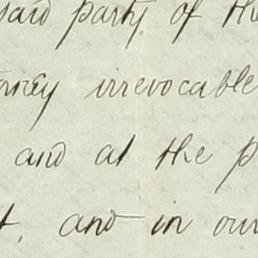 said party of the
orney irrevocable
and at the p
t, and in our